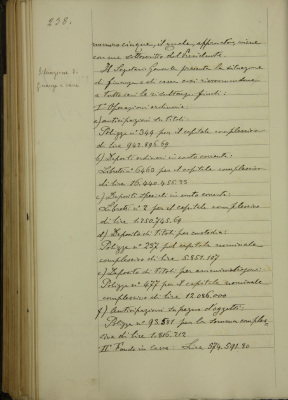 238.
numero cinque, il quale, approvato, viene
come sottoscritto dal Presidente.
Situazione di
finanza e cassa
Il Segretario Generale presenta la situazione
di finanza e di cassa così riassumendosi
a tutto
I° Operazioni ordinarie.
a) anticipazioni su titoli:
Polizze n° 344 per il capitale complessivo
di lire 942.896.69
b) Depositi ordinari in conto corrente:
Libretti n° 6460 per il capitale complessivo
di lire 16.440.455.33
c) Depositi speciali in conto corrente
Libretti n° 2 per il capitale complessivo
di lire 1.250.745.69
d) Deposito di titoli per custodia:
Polizze n° 257 pel capitale nominale
complessivo di lire 5.851.107
e) Deposito di titoli per amministrazione:
Polizze n° 477 per il capitale nominale
complessivo di lire 12.086.000
f) Anticipazioni su pegno d'oggetti:
Polizze n° 93.581 per la somma comples-
siva di lire 1.816.212
II° Fondo in cassa: Lire 374.591.30